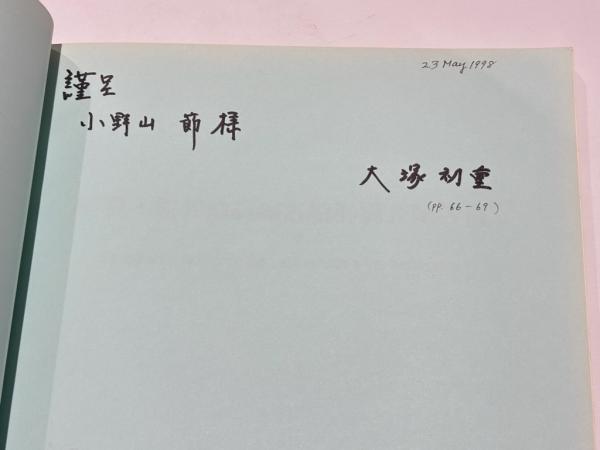 23 May 1998
謹呈
小野山 節 様
大塚初重
(pp. 66-69)